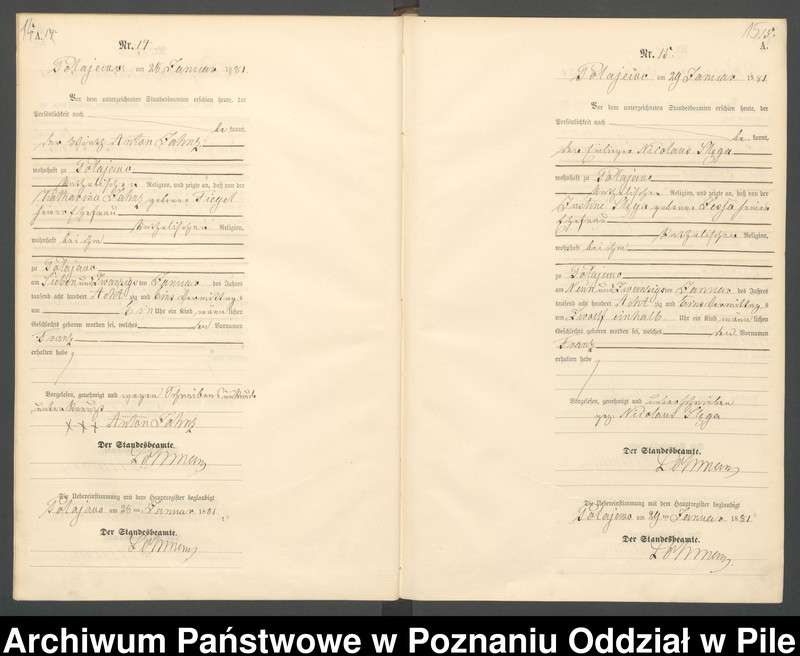 14.
A. 14
Nr. 14
Połajewo am 28 Januar 1881.
Vor dem unterzeichneten Standesbeamten erschien heute, der
Persönlichkeit nach
be kannt,
der Wirth Anton Jahnz
wohnhaft zu Połajewo
katholischer Religion, und zeigte an, daß von der
Katharina Jahnz geborne Ziegel
seiner Ehefrau
katholischen Religion,
wohnhaft bei ihm
zu Połajewo
am Sieben und zwanzigsten Januar des Jahres
tausend acht hundert Acht zig und Eins Vormittag s
um Zehn Uhr ein Kind männ lichen
Geschlechts geboren worden sei, welches den Vornamen
Franz
erhalten habe
Vorgelesen, genehmigt und wegen Schreibensunkunde
unterkreuzt
x x x Anton Jahnz
Der Standesbeamte.
Die Uebereinstimmung mit dem Hauptregister beglaubigt
Połajewo am 28 ten Januar 1881.
Der Standesbeamte.
15 15.
A.
Nr. 15.
Połajewo am 29 Januar 1881.
Vor dem unterzeichneten Standesbeamten erschien heute, der
Persönlichkeit nach
be kannt,
der Nicolaus
wohnhaft zu Połajewo
katholischer Religion, und zeigte an, daß von der
geborene seiner
Ehefrau
katholischen Religion,
wohnhaft bei ihm
zu Połajewo
am Neun und Zwanzigsten Januar des Jahres
tausend acht hundert Acht zig und Eins Vormittag s
um Zwoelf einhalb Uhr ein Kind männ lichen
Geschlechts geboren worden sei, welches den Vornamen
Franz
erhalten habe
Vorgelesen, genehmigt und unterschrieben
gez. Nicolaus
Der Standesbeamte.
Die Uebereinstimmung mit dem Hauptregister beglaubigt
Połajewo am 29 ten Januar 1881.
Der Standesbeamte.
Archiwum Państwowe w Poznaniu Oddział w Pile